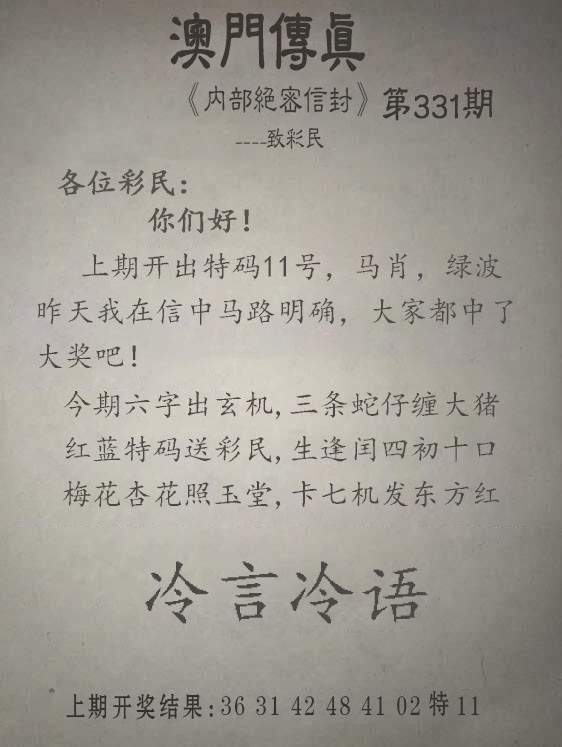 澳門傳眞
《内部絕密信封》第331期
----致彩民
各位彩民:
你们好!
上期开出特码11号，马肖，绿波
昨天我在信中马路明确，大家都中了
大奖吧!
今期六字出玄机,三条蛇仔缠大猪
红蓝特码送彩民,生逢闰四初十口
梅花杏花照玉堂,卡七机发东方红
冷言冷语
上期开奖结果:36 31 42 48 41 02 特 11